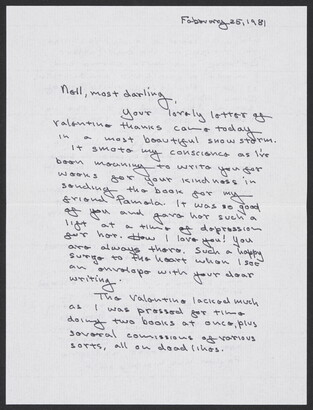 February 25, 1981
Nell, most darling,
Your lovely letter of
valentine thanks came today
in a most beautiful snowstorm.
It smote my conscience as I've
been meaning to write you for
weeks for your kindness in
sending the book for my
friend Pamela. It was so good
of you and gave her such a
lift at a time of depression
for her. How I love you! You
are always there. Such a happy
surge to the heart when I see
an envelope with your dear
writing.
The Valentine lacked much
as I was pressed for time
doing two books at once, plus
several comissions of various
sorts, all on deadlines.